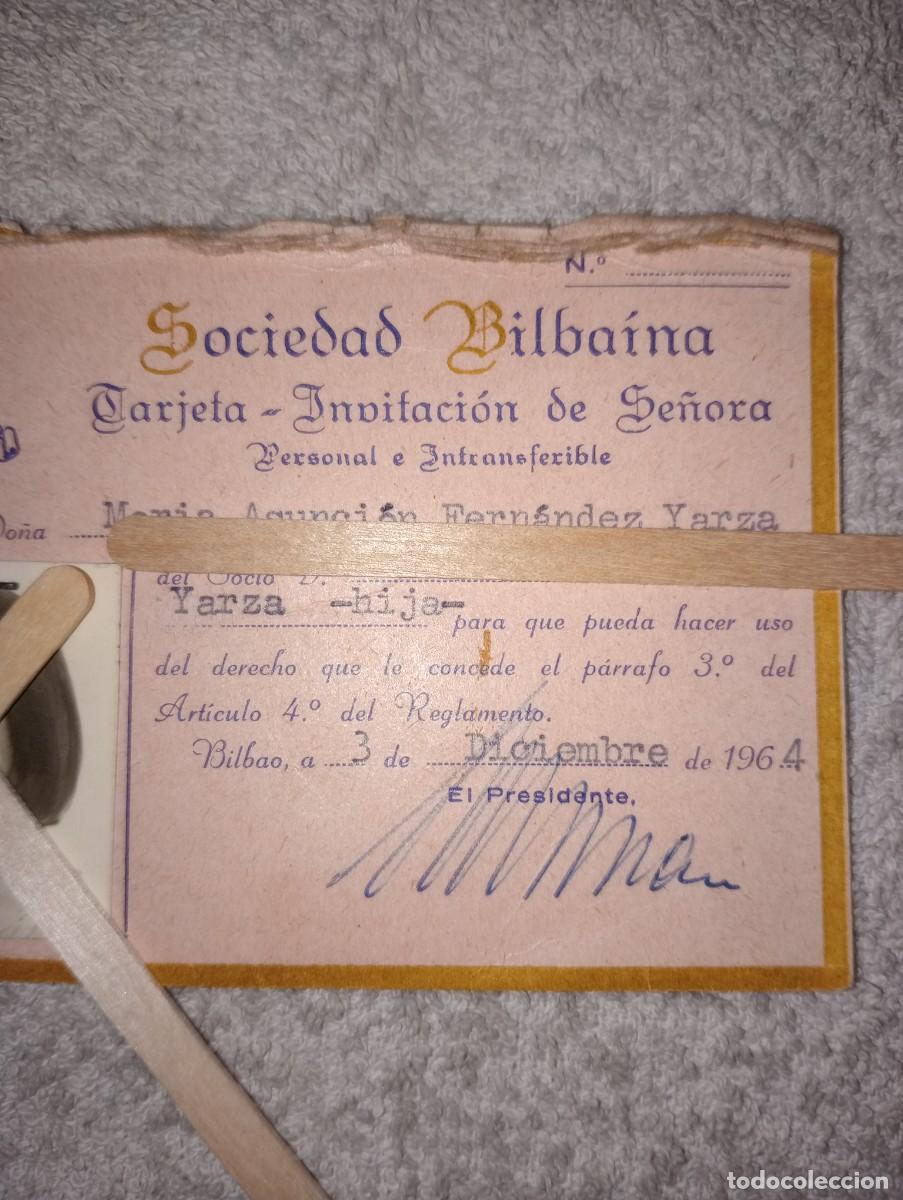 N.º
Sociedad Bilbaína
Tarjeta - Invitación de Señora
Personal e Intransferible
Doña Maria Asunción Fernández Yarza
del Socio D.
Yarza -hija-
para que pueda hacer uso
del derecho que le concede el párrafo 3.º del
Artículo 4.º del Reglamento.
Bilbao, a 3 de Diciembre de 1964
El Presidente,
todocoleccion